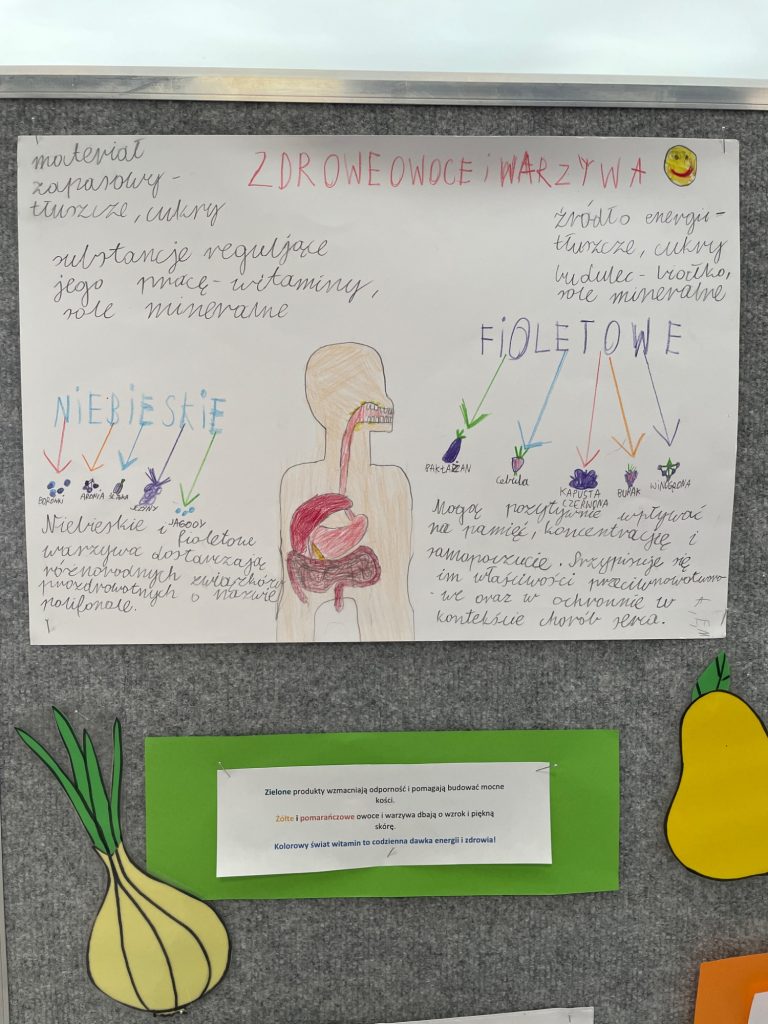 ZDROWE OWOCE i WARZYWA
materiał
zapasowy -
tłuszcze, cukry
substancje regulujące
jego pracę - witaminy,
sole mineralne
źródło energii -
tłuszcze, cukry
budulec - białko,
sole mineralne
NIEBIESKIE
BORÓWKI ARONIA ŚLIWKA JEŻYNY JAGODY
Niebieskie i fioletowe
warzywa dostarczają
różnorodnych związków
prozdrowotnych o nazwie
polifonale.
FiOLETOWE
BAKŁAŻAN Cebula KAPUSTA CZERWONA BURAK WINOGRONA
Mogą pozytywnie wpływać
na pamięć, koncentrację i
samopoczucie. Przypisuje się
im właściwości przeciwnowotworo-
-we oraz w ochronnie w
kontekście chorób serca.
Zielone produkty wzmacniają odporność i pomagają budować mocne
kości.
Żółte i pomarańczowe owoce i warzywa dbają o wzrok i piękną
skórę.
Kolorowy świat witamin to codzienna dawka energii i zdrowia!